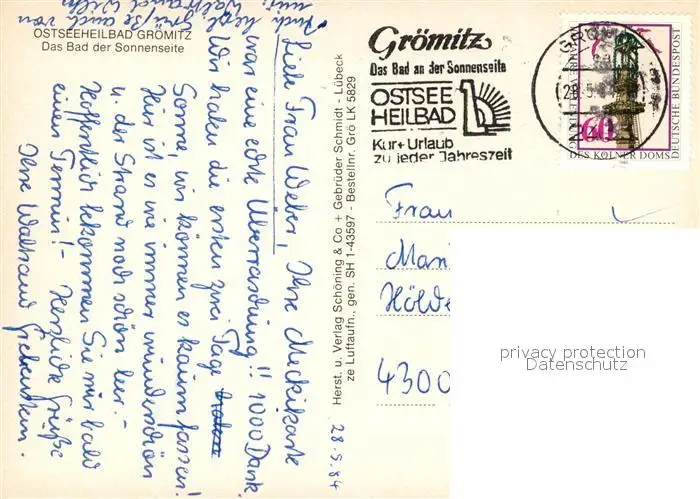 OSTSEEHEILBAD GRÖMITZ
Das Bad der Sonnenseite
Liebe Frau Weber, Ihre Meckikarte
war eine echte Überraschung!! 1000 Dank.
Wir haben die ersten zwei Tage
Sonne, wir können es kaum fassen!
Hier ist es wie immer wunderschön
u. der Strand noch schön leer.-
Hoffentlich bekommen Sie nur bald
einen Termin!- Herzliche Grüße
Ihre Waltraud
Auch liebe Grüße auch von
28.5.84
Herst. u. Verlag Schöning & Co + Gebrüder Schmidt - Lübeck
ze Luftaufn., gen. SH 1-43597 - Bestellnr. Grö LK 5829
Grömitz
Das Bad an der Sonnenseite
OSTSEE
HEILBAD
Kur+Urlaub
zu jeder Jahreszeit
GRÖM
28.5.
60
DES KÖLNER DOMS
DEUTSCHE BUNDESPOST
Frau
Mari
Hölde
4300
privacy protection
Datenschutz